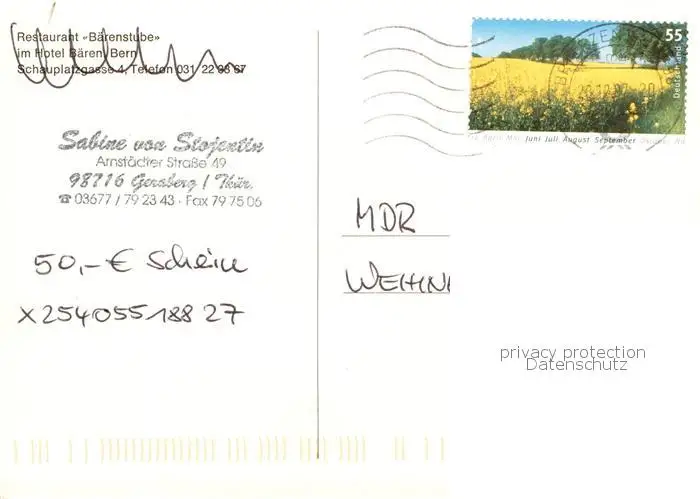 Restaurant «Bärenstube»
im Hotel Bären, Bern
Schauplatzgasse 4, Telefon 031 22 33 67
Sabine von Stojentin
Arnstädter Straße 49
98716 Geraberg / Thür.
☎ 03677 / 79 23 43 · Fax 79 75 06
50,– € Schein
X25405518827
55
Deutschland
Juni Juli August September
MDR
WEIHN
privacy protection
Datenschutz